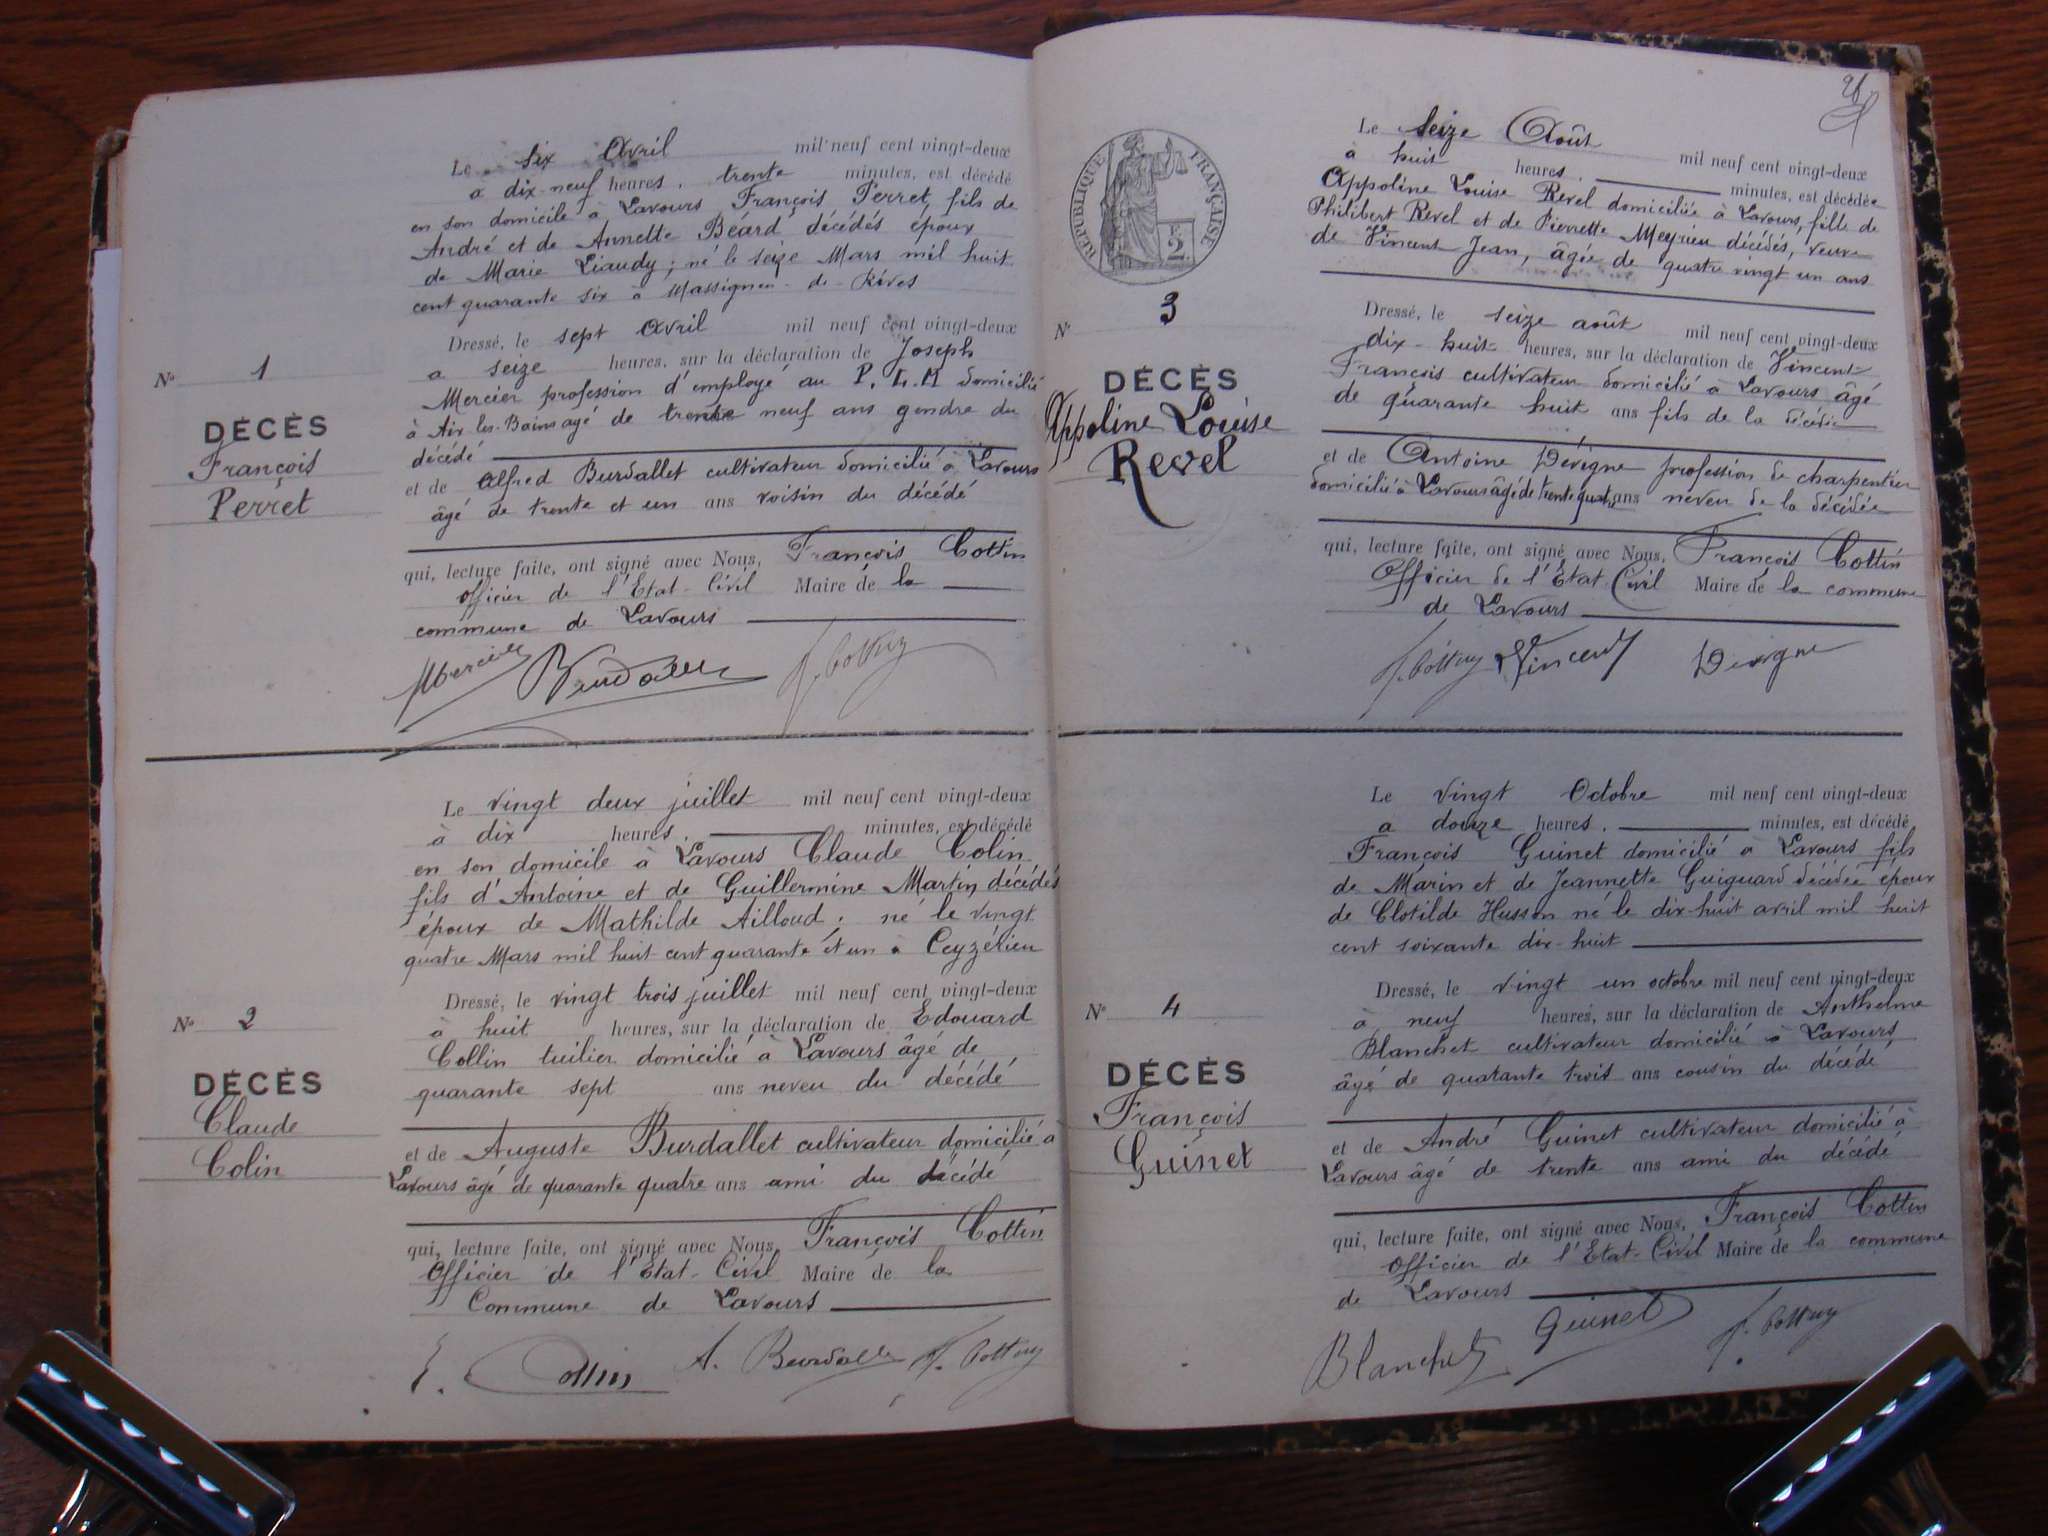 Le six Avril mil neuf cent vingt-deux
a dix-neuf heures, trente minutes, est décédé
en son domicile à Lavours François Perret, fils de
André et de Annette Béard décédés époux
de Marie Liaudy; né le seize Mars mil huit
cent quarante six à Massignieu-de-Rives
Dressé, le sept Avril mil neuf cent vingt-deux
a seize heures, sur la déclaration de Joseph
Mercier profession d'employé au P. L. M domicilié
à Aix-les-Bains agé de trente neuf ans gendre du
décédé
et de Alfred Burdallet cultivateur domicilié à Lavours
âgé de trente et un ans voisin du décédé
qui, lecture faite, ont signé avec Nous, François Cottin
Officier de l'État-Civil Maire de la
commune de Lavours
Mercier Burdallet F. Cottin
N° 1
DÉCÈS
François
Perret
Le vingt deux juillet mil neuf cent vingt-deux
à dix heures, minutes, est décédé
en son domicile à Lavours Claude Colin
fils d'Antoine et de Guillermine Martin décédés
époux de Mathilde Ailloud; né le vingt
quatre Mars mil huit cent quarante et un à Ceyzérieu
Dressé, le vingt trois juillet mil neuf cent vingt-deux
à huit heures, sur la déclaration de Edouard
Collin tuilier domicilié à Lavours âgé de
quarante sept ans neveu du décédé
et de Auguste Burdallet cultivateur domicilié à
Lavours âgé de quarante quatre ans ami du décédé
qui, lecture faite, ont signé avec Nous, François Cottin
Officier de l'État-Civil Maire de la
Commune de Lavours
E. Collin A. Burdallet F. Cottin
N° 2
DÉCÈS
Claude
Colin
RÉPUBLIQUE FRANÇAISE
2
Le Seize Août mil neuf cent vingt-deux
à huit heures, minutes, est décédée
Appoline Louise Revel domiciliée à Lavours, fille de
Philibert Revel et de Pierrette Meyrieu décédés, veuve
de Vincent Jean, âgée de quatre vingt un ans
Dressé, le seize août mil neuf cent vingt-deux
dix-huit heures, sur la déclaration de Vincent
François cultivateur domicilié à Lavours âgé
de quarante huit ans fils de la décédée
et de Antoine Dévigne profession de charpentier
domicilié à Lavours âgé de trente quatre ans neveu de la décédée
qui, lecture faite, ont signé avec Nous, François Cottin
Officier de l'État Civil Maire de la commune
de Lavours
F. Cottin Vincent Devigne
N° 3
DÉCÈS
Appoline Louise
Revel
Le vingt Octobre mil neuf cent vingt-deux
a douze heures, minutes, est décédé
François Guinet domicilié a Lavours fils
de Marin et de Jeannette Guiguard décédée époux
de Clotilde Husson né le dix-huit avril mil huit
cent soixante dix-huit
Dressé, le vingt un octobre mil neuf cent vingt-deux
à neuf heures, sur la déclaration de Anthelme
Blanchet cultivateur domicilié a Lavours
âgé de quarante trois ans cousin du décédé
et de André Guinet cultivateur domicilié à
Lavours âgé de trente ans ami du décédé
qui, lecture faite, ont signé avec Nous, François Cottin
Officier de l'État-Civil Maire de la commune
de Lavours
Blanchet Guinet F. Cottin
N° 4
DÉCÈS
François
Guinet